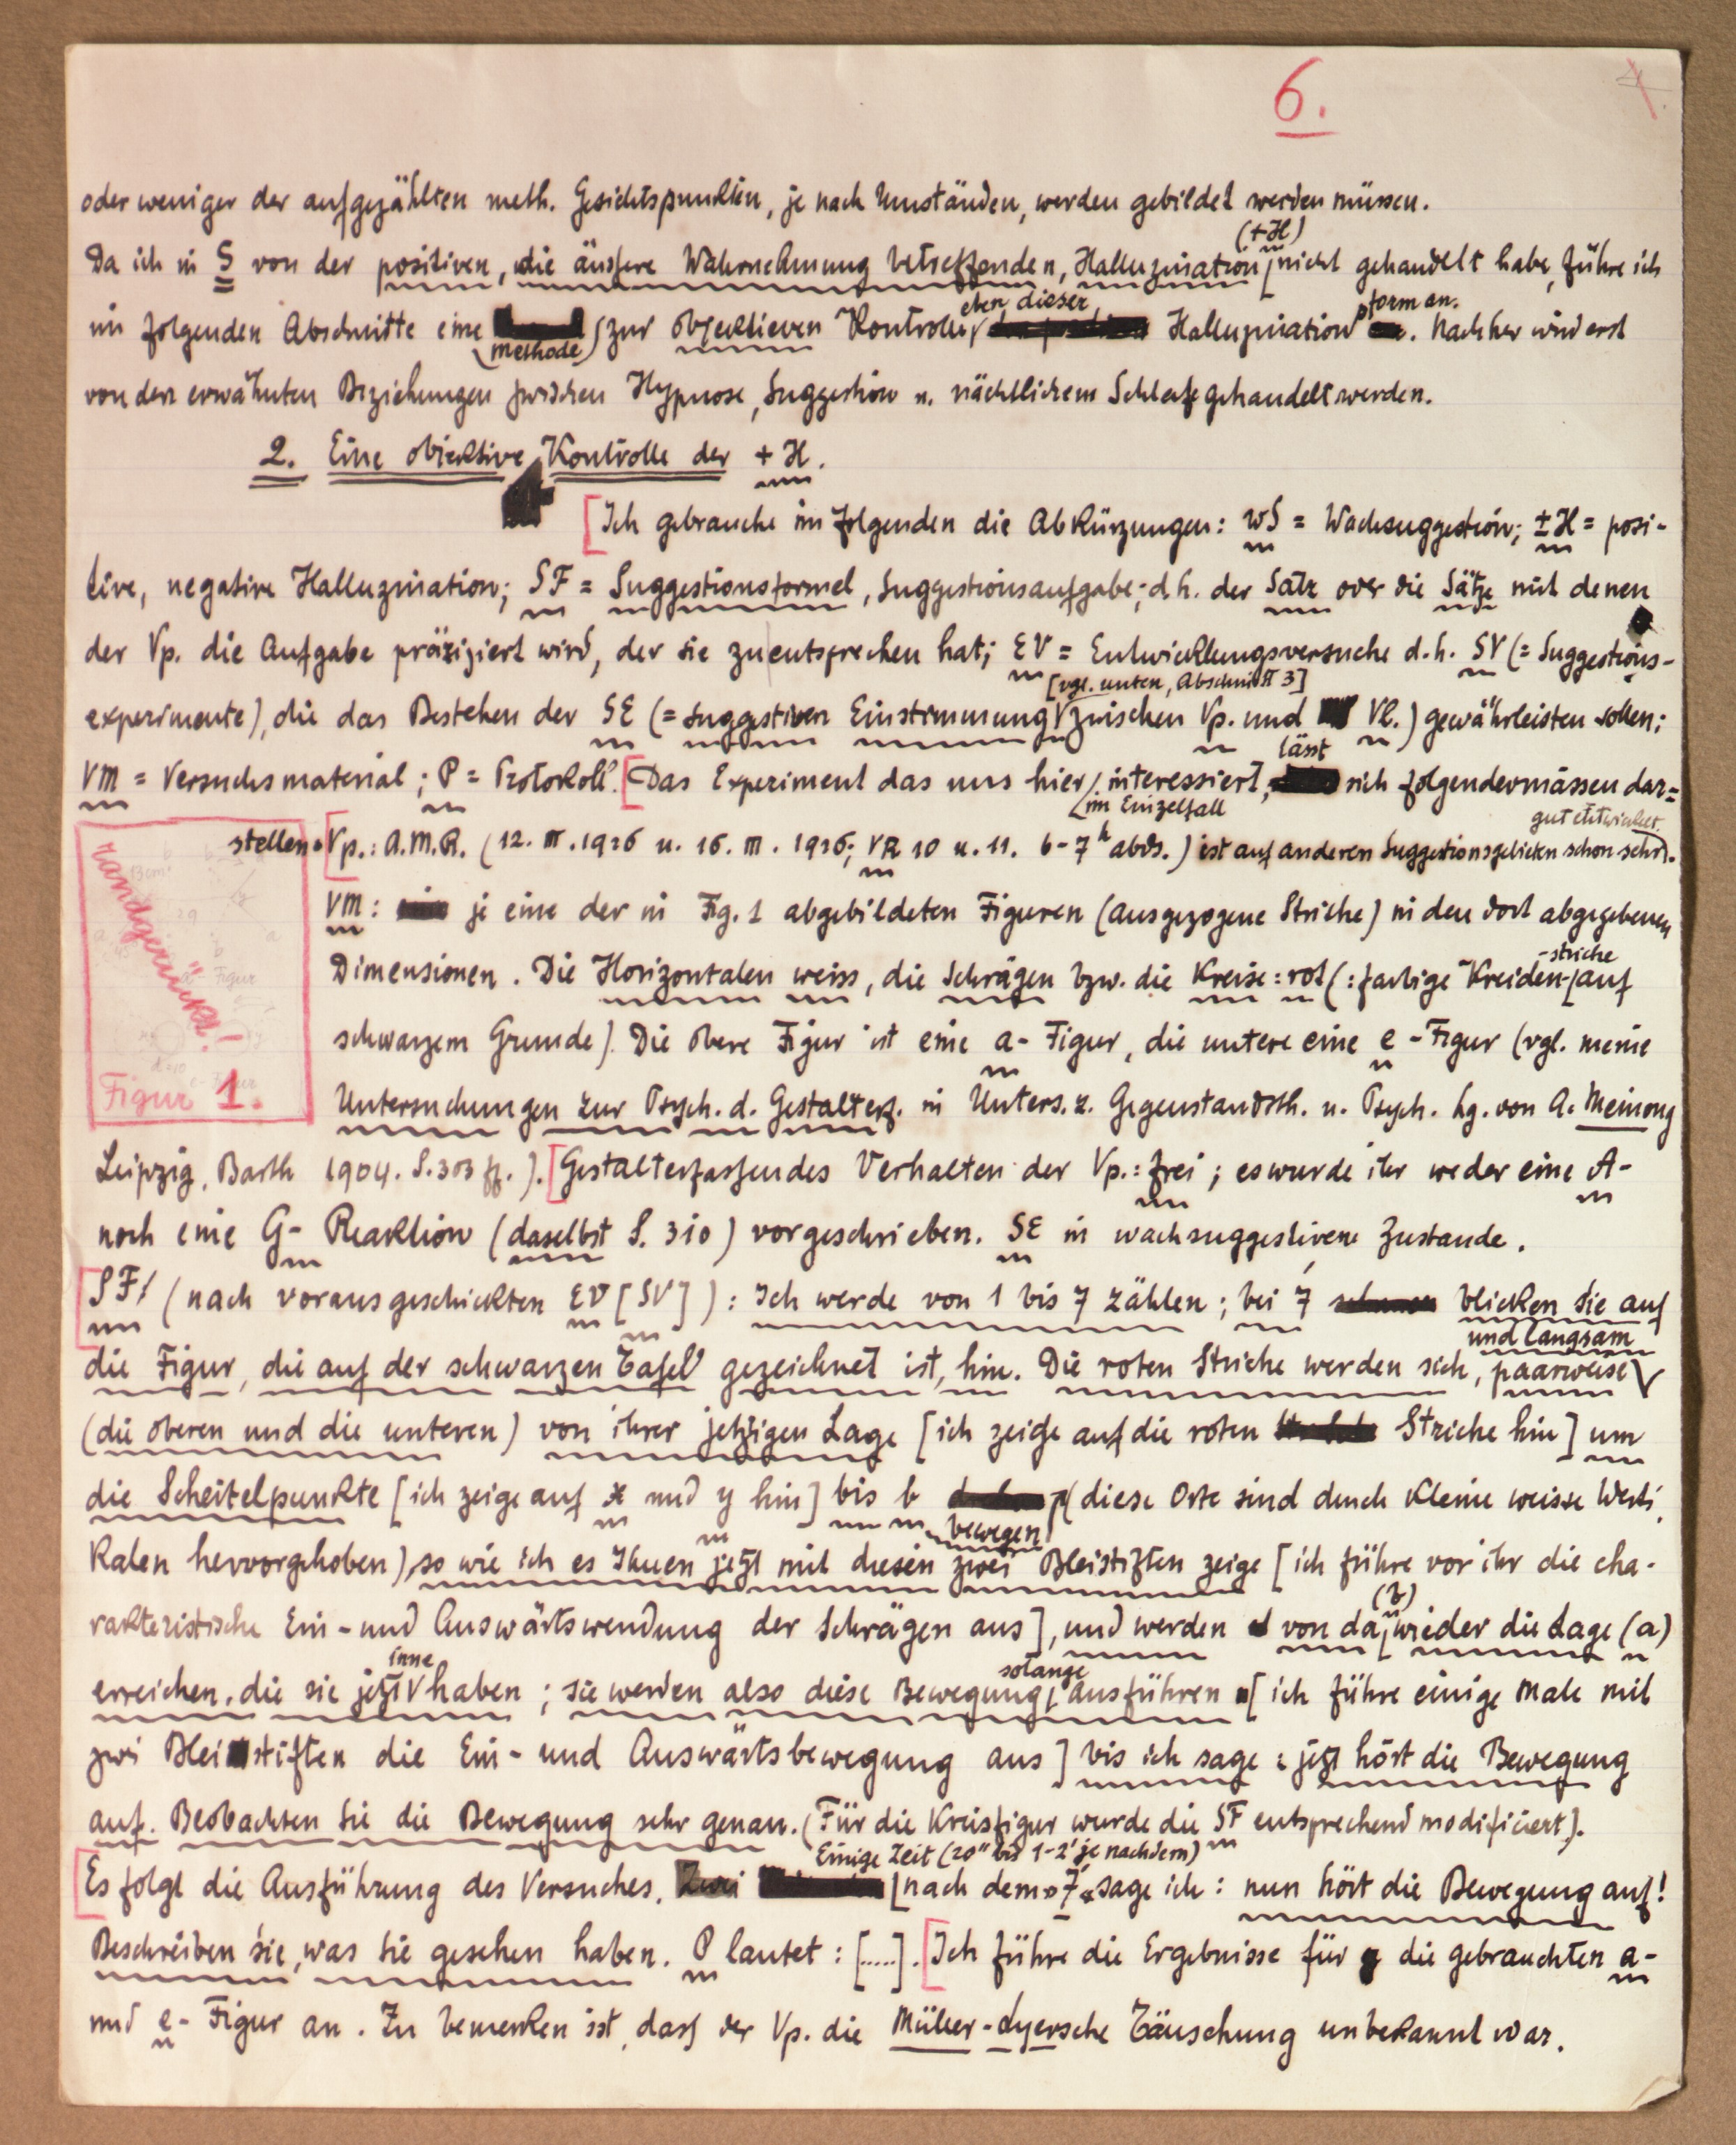 6.
oder weniger der aufgezählten meth. Gesichtspunkten, je nach Umständen, werden gebildet werden müssen.
Da ich in S von der positiven, die äussere Wahrnehmung betreffenden, Halluzination (+H) nicht gehandelt habe, führe ich
im folgenden Abschnitte eine Methode zur objektieven Kontrolle eben dieser Halluzinationsform an. Nachher wird erst
von den erwähnten Beziehungen zwischen Hypnose, Suggestion u. nächtlichem Schlafe gehandelt werden.
2. Eine objektive Kontrolle der + H.
[Ich gebrauche im folgenden die Abkürzungen: wS = Wachsuggestion; ±H = posi-
tive, negative Halluzination; SF = Suggestionsformel, Suggestionsaufgabe; d h. der Satz oder die Sätze mit denen
der Vp. die Aufgabe präzisiert wird, der sie zu entsprechen hat; EV = Entwicklungsversuche d.h. SV (= Suggestions-
experimente), die das Bestehen der SE (= suggestiven Einstimmung [vgl. unten, Abschnitt 3] zwischen Vp. und Vl.) gewährleisten sollen;
VM = Versuchsmaterial; P = Protokoll. [Das Experiment das uns hier im Einzelfall interessiert, lässt sich folgendermassen dar=
stellen. [Vp.: A.M.R. (12. III. 1926 u. 16. III. 1926; VR 10 u. 11. 6-7h abds.) ist auf anderen Suggestionsgebieten schon sehr gut entwickelt.
VM: je eine der in Fig. 1 abgebildeten Figuren (ausgezogene Striche) in den dort abgegebenen
Dimensionen. Die Horizontalen weiss, die Schrägen bzw. die Kreise: rot (: farbige Kreiden-striche auf
schwarzem Grunde). Die obere Figur ist eine a-Figur, die untere eine e-Figur (vgl. meine
Untersuchungen zur Psych. d. Gestalterf. in Unters. z. Gegenstandsth. u. Psych. hg. von A. Meinong
randgerückt!
Figur 1.
Leipzig, Barth 1904. S. 303 ff.). [Gestalterfassendes Verhalten der Vp.: frei; es wurde ihr weder eine A-
noch eine G- Reaktion (daselbst S. 310) vorgeschrieben. SE in wachsuggestivem Zustande.
SF! (nach vorausgeschickten EV [SV]): Ich werde von 1 bis 7 zählen; bei 7 blicken Sie auf
die Figur, die auf der schwarzen Tafel gezeichnet ist, hin. Die roten Striche werden sich, paarweise und langsam
(die oberen und die unteren) von ihrer jetzigen Lage [ich zeige auf die roten Striche hin] um
die Scheitelpunkte [ich zeige auf x und y hin] bis b bewegen (diese Orte sind durch kleine weisse Verti
kalen hervorgehoben), so wie ich es Ihnen jetzt mit diesen zwei Bleistiften zeige [ich führe vor ihr die cha-
rakteristische Ein- und Auswärtswendung der Schrägen aus], und werden von da (b) wieder die Lage (a)
erreichen, die sie jetzt inne haben; sie werden also diese Bewegung solange ausführen [ich führe einige Male mit
zwei Bleistiften die Ein- und Auswärtsbewegung aus] bis ich sage: jetzt hört die Bewegung
auf. Beobachten Sie die Bewegung sehr genau. (Für die Kreisfigur wurde die SF entsprechend modificiert).
[Es folgt die Ausführung des Versuches. Einige Zeit (20" bis 1-2' je nachdem) nach dem »7« sage ich: nun hört die Bewegung auf!
Beschreiben Sie, was Sie gesehen haben. P lautet: [.....]. [Ich führe die Ergebnisse für die gebrauchten a-
und e- Figur an. Zu bemerken ist, dass der Vp. die Müller-Lyersche Täuschung unbekannt war.